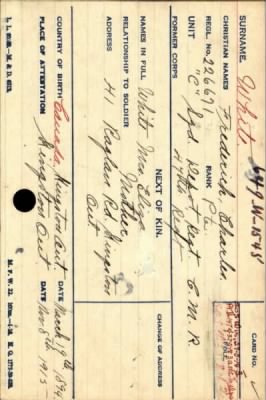 SURNAME. White
CARD NO.
649-W-1548
CHRISTIAN NAMES Frederick Charles
REGL. NO. 226697 RANK Pte.
UNIT "C" Sqd. Depot Regt C. M. R.
FORMER CORPS
NEXT OF KIN.
NAMES IN FULL White Mrs Eliza
RELATIONSHIP TO SOLDIER Mother
ADDRESS 41 Raglan Rd Kingston
Ont
CHANGE OF ADDRESS
COUNTRY OF BIRTH Canada, Kingston Ont DATE March 19th
PLACE OF ATTESTATION Kingston Ont DATE Nov 8th 1915
M. F. W. 22.